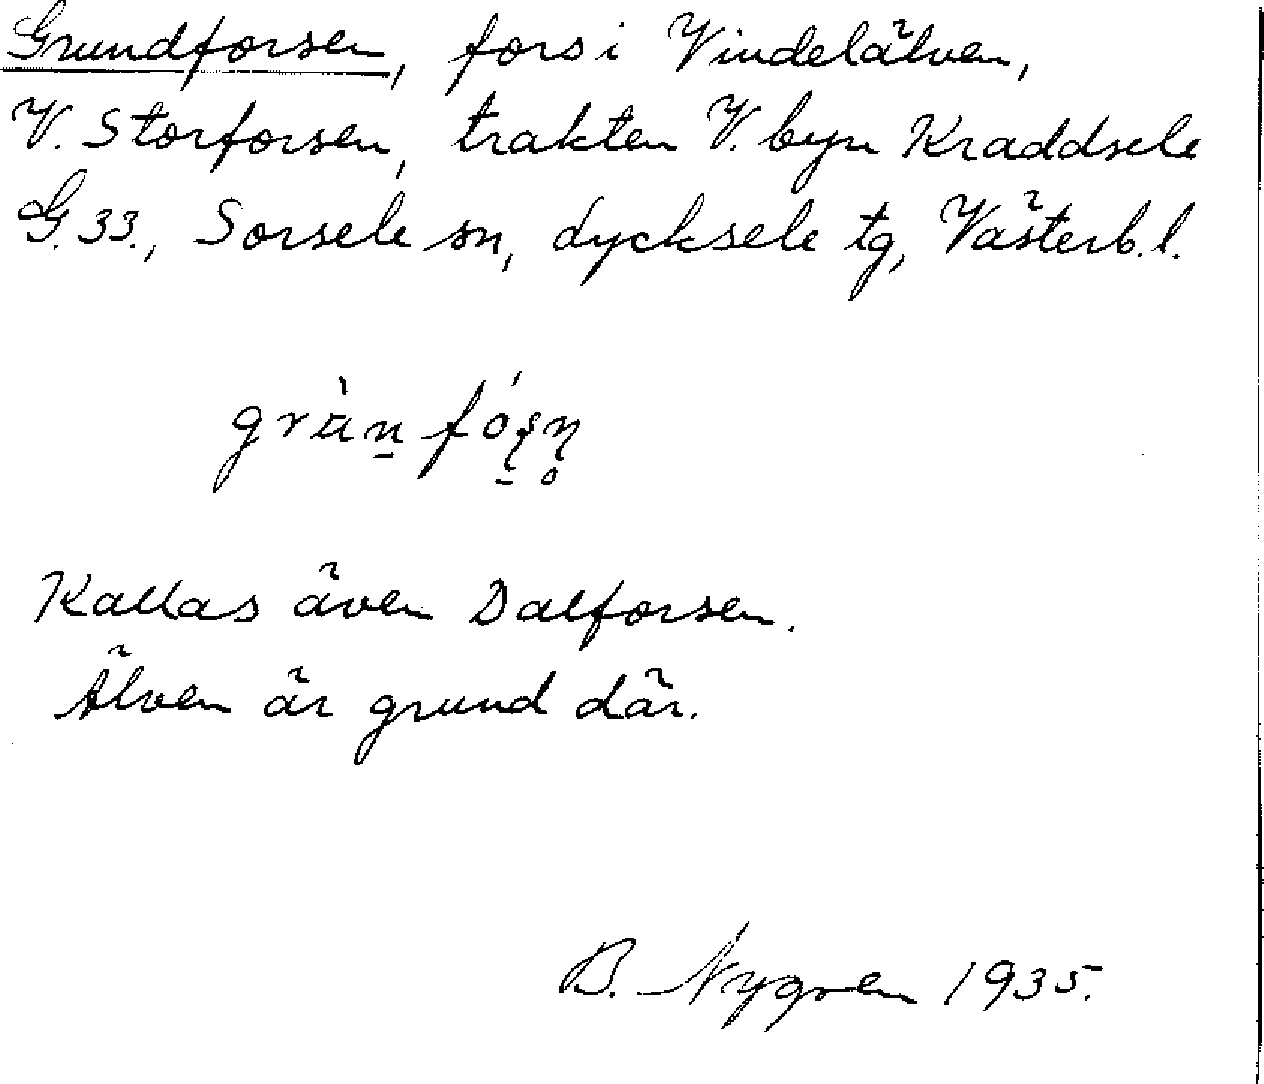 Grundforsen, fors i Vindelälven,
V. Storforsen, trakten V. byn Kraddsele
G. 33., Sorsele sn, dycksele tg, Västerb. l.
Kallas även Dalforsen.
Älven är grund där.
B. Nygren 1935.